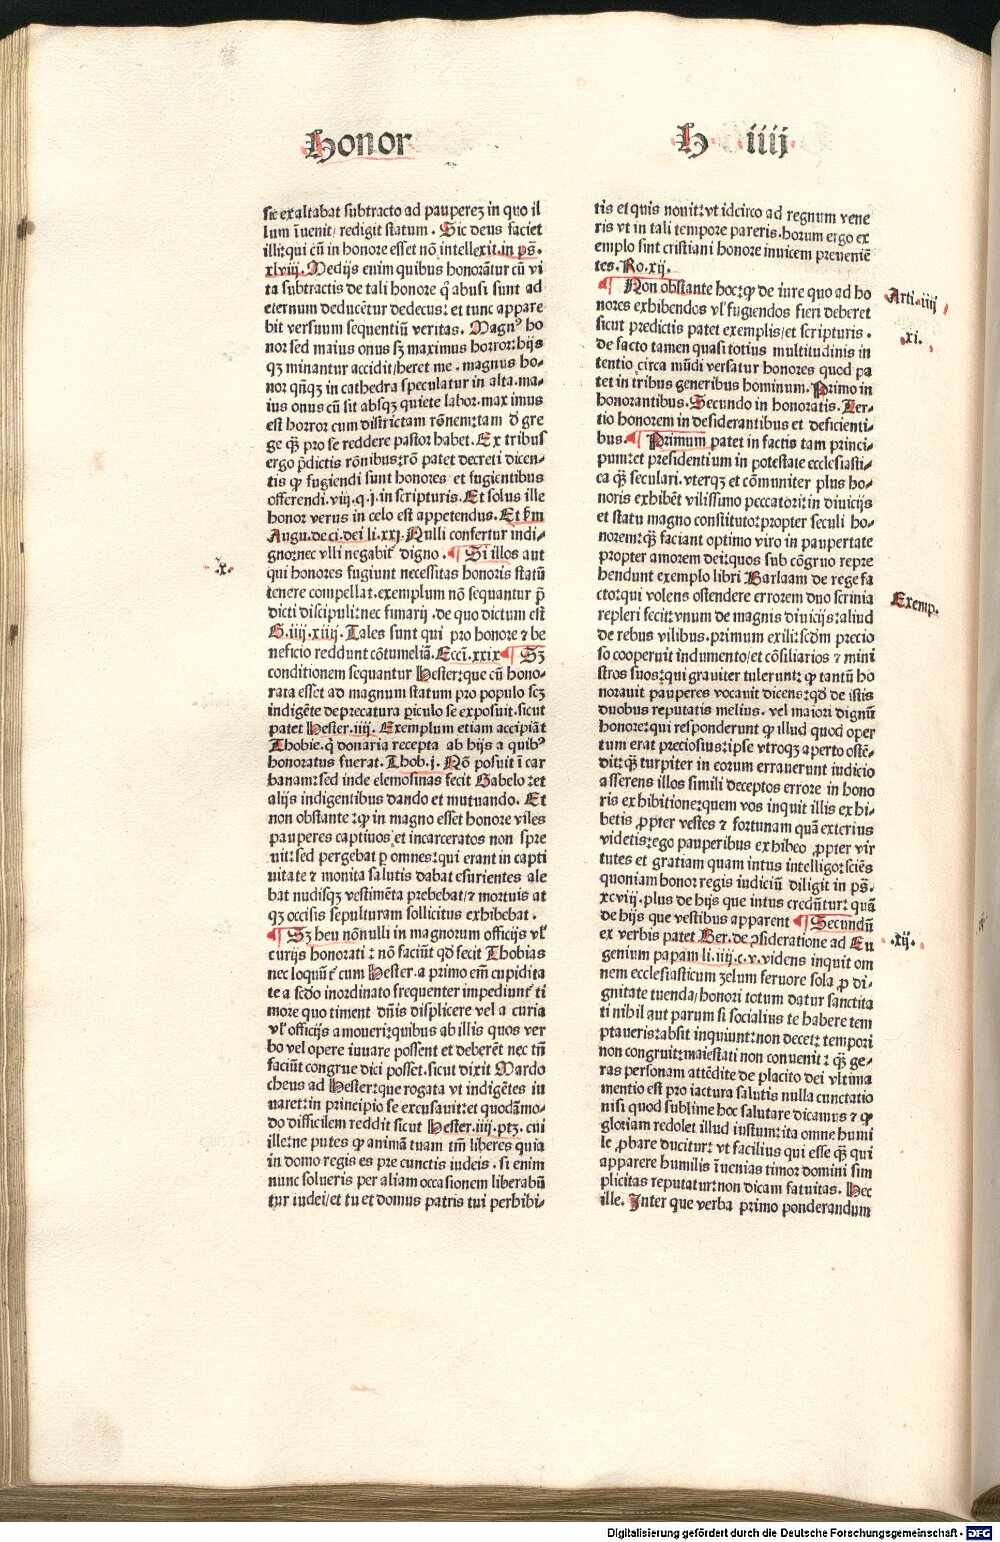 Honor
H iiij
sic exaltabat subtracto ad pauperez in quo il
lum īuenit/ redigit statum. Sic deus faciet
illi:qui cū in honore esset nō intellexit.in ps̄.
xlviij. Medijs enim quibus honorātur cū vi
ta subtractis de tali honore q̄ abusi sunt ad
eternum deducētur dedecus: et tunc appare
bit versuum sequentiū veritas. Magnꝰ ho
nor sed maius onus sꝫ maximus horror:hijs
qꝫ minantur accidit/heret me. magnus ho-
nor qn̄qꝫ in cathedra speculatur in alta.ma-
ius onus cū sit absqꝫ quiete labor.maximus
est horror cum districtam rōnem:tam d̄ gre
ge qꝫ̄ pro se reddere pastor habet. Ex tribus
ergo p̄dictis rōnibus:rō patet decreti dicen-
tis ꝙ fugiendi sunt honores et fugientibus
offerendi.viij.q.j.in scripturis. Et solus ille
honor verus in celo est appetendus. Et s̄m
Augu.de ci.dei li.xxj. Nulli confertur indi-
gno:nec vlli negabit̉ digno. ¶ Si illos aut
qui honores fugiunt necessitas honoris statū
tenere compellat.exemplum nō sequantur p̄
dicti discipuli:nec fimarij.de quo dictum est
G.iiij.xiiij. Tales sunt qui pro honore ⁊ be
neficio reddunt cōtumeliā. Ecci̅.xxix ¶ Sꝫ
conditionem sequantur Hester:que cū hono-
rata esset ad magnum statum pro populo scꝫ
indigēte deprecatura ꝑiculo se exposuit.sicut
patet Hester.iiij. Exemplum etiam accipiāt
Thobie.q̄ donaria recepta ab hijs a quibꝰ
honoratus fuerat. Thob.j. Nō posuit ī car
banam:sed inde elemosinas fecit Gabelo:et
alijs indigentibus dando et mutuando. Et
non obstante:ꝙ in magno esset honore viles
pauperes captiuos et incarceratos non spre
uit:sed pergebat ꝑ omnes:qui erant in capti
uitate ⁊ monita salutis dabat esurientes ale
bat nudisqꝫ vestimēta prebebat/⁊ mortuis at
qꝫ occisis sepulturam sollicitus exhibebat.
¶ Sꝫ heu nōnulli in magnorum officijs vl̉
curijs honorati: nō faciūt qd̄ fecit Thobias
nec loquūt̉ cum Hester.a primo em̄ cupidita
te a scd̄o inordinato frequenter impediunt̉ ti
more quo timent dn̄is displicere vel a curia
vl̉ officijs amoueri:quibus ab illis quos ver
bo vel opere iuuare possent et deberēt nec tn̄
faciūt congrue dici posset.sicut dixit Mardo
cheus ad Hester:que rogata vt indigētes iu
uaret:in principio se excusauit:et quodāmo-
do difficilem reddit sicut Hester.iiij.ptꝫ. cui
ille:ne putes ꝙ animā tuam tm̄ liberes quia
in domo regis es pre cunctis iudeis. si enim
nunc solueris per aliam occasionem liberabū
tur iudei/et tu et domus patris tui perhibi-
tis et quis nouit:vt idcirco ad regnum vene
ris vt in tali tempore pareris.horum ergo ex
emplo sint cristiani honore inuicem preueniē
tes. Ro.xij.
¶ Non obstante hoc:ꝙ de iure quo ad ho
nores exhibendos vl̉ fugiendos fieri deberet
sicut predictis patet exemplis/et scripturis.
de facto tamen quasi totius multitudinis in
tentio circa mūdi versatur honores quod pa
tet in tribus generibus hominum. Primo in
honorantibus. Secundo in honoratis. Ter-
tio honorem in desiderantibus et deficienti-
bus. ¶ Primum patet in factis tam princi-
pum:et presidentium in potestate ecclesiasti-
ca qꝫ̄ seculari.vterqꝫ et cōmuniter plus ho-
noris exhibēt vilissimo peccatori:in diuicijs
et statu magno constituto:propter seculi ho-
norem:qꝫ̄ faciant optimo viro in paupertate
propter amorem dei:quos sub cōgruo repre
hendunt exemplo libri Barlaam de rege fa
cto:qui volens ostendere errorem duo scrinia
repleri fecit:vnum de magnis diuicijs:aliud
de rebus vilibus.primum exili:scd̄m precio
so cooperuit indumento/et cōsiliarios ⁊ mini
stros suos:qui grauiter tulerunt: ꝙ tantū ho
norauit pauperes vocauit dicens:qd̄ de istis
duobus reputatis melius. vel maiori dignū
honore:qui responderunt ꝙ illud quod oper
tum erat preciosius:ipse vtroqꝫ aperto ostē-
dit:qꝫ̄ turpiter in eorum errauerunt iudicio
asserens illos simili deceptos errore in hono
ris exhibitione:quem vos inquit illis exhi-
betis ꝓpter vestes ⁊ fortunam quā exterius
videtis:ego pauperibus exhibeo ꝓpter vir
tutes et gratiam quam intus intelligo:sciēs
quoniam honor regis iudiciū diligit in ps̄.
xcviij.plus de hijs que intus credūtur: quā
de hijs que vestibus apparent ¶ Secundū
ex verbis patet Ber.de ꝯsideratione ad Eu
genium papam li.iiij.c.v.videns inquit om
nem ecclesiasticum zelum feruore sola ꝓ di-
gnitate tuenda/honori totum datur sanctita
ti nihil aut parum si socialius te habere tem
ptaueris:absit inquiunt:non decet: tempori
non congruit:maiestati non conuenit: qꝫ̄ ge-
ras personam attēdite de placito dei vltima
mentio est pro iactura salutis nulla cunctatio
nisi quod sublime hoc salutare dicamus ⁊ ꝙ
gloriam redolet illud iustum:ita omne humi
le ꝓbare ducitur: vt facilius qui esse qꝫ̄ qui
apparere humilis īuenias timor domini sim
plicitas reputatur:non dicam fatuitas. Hec
ille. Inter que verba primo ponderandum
.x.
Arti.iiij
.xi.
Exemp.
.xij.
Digitalisierung gefördert durch die Deutsche Forschungsgemeinschaft - DFG